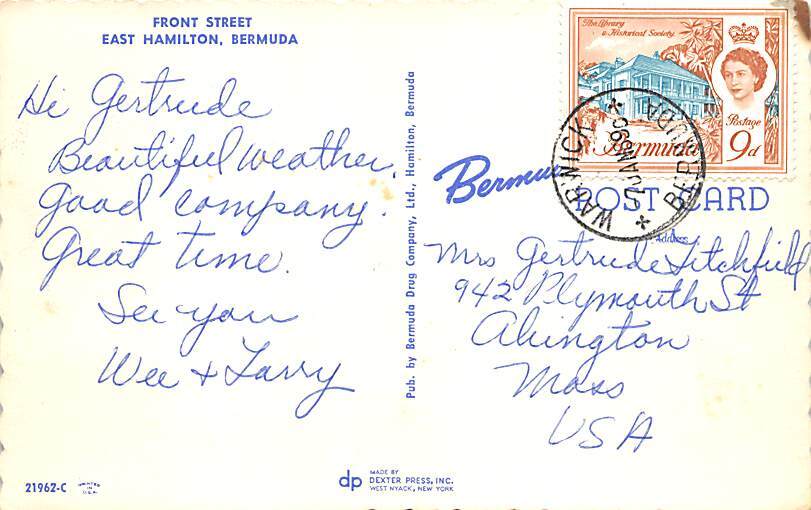 FRONT STREET
EAST HAMILTON, BERMUDA
Hi Gertrude
Beautiful weather.
Good company.
Great time.
See you
Wee + Larry
21962-C
PRINTED
IN
U.S.A.
Pub. by Bermuda Drug Company, Ltd., Hamilton, Bermuda
dp
MADE BY
DEXTER PRESS, INC.
WEST NYACK, NEW YORK
The Library
& Historical Society
Postage
Bermuda
9d
WARWICK
BERMUDA
Bermuda
POST CARD
Address
Mrs Gertrude Litchfield
942 Plymouth St
Abington
Mass
USA